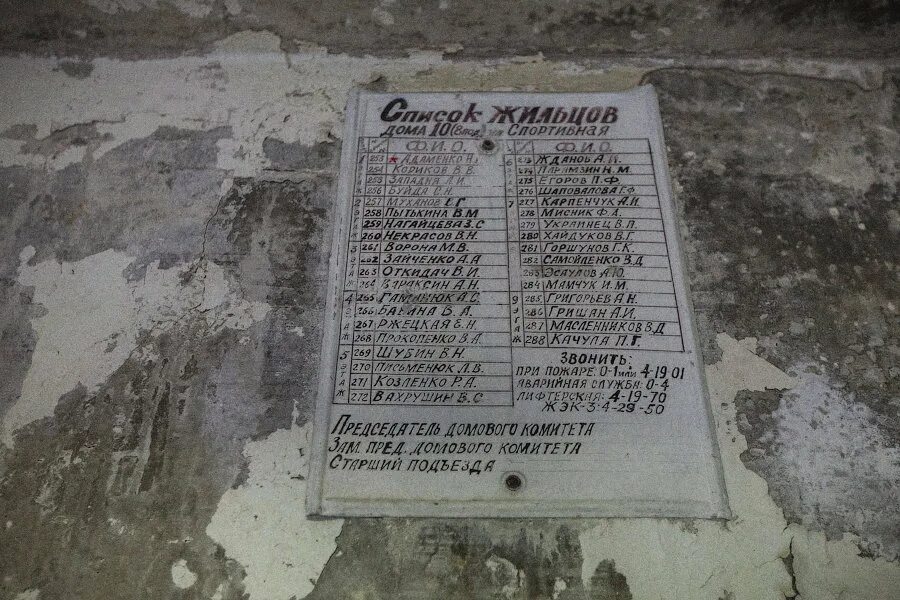 Список жильцов
дома 10 ул Спортивная
Ф.И.О.
253 Адаменко А.
254 Кориков В.В.
255 Западка
256 Буйда
257 Муханов Е.Г.
258 Пытькина В.М
259 Нагайцева З.С
260 Некрасов В.Н.
261 Ворона М.В.
262 Зайченко А.А
263 Откидач В.И.
264 Вараксин А.Н.
265 А.С.
266 Бабина Б.А.
267 Ржецкая Е.Н
268 Прокопенко В.А.
269 Шубин В.Н.
270 Письменюк Л.В.
271 Козленко Р.А.
272 Вахрушин В.С
Ф.И.О.
Жданов А.И.
274 Парамзин Н.М.
275 Егоров П.Ф.
276 Шаповалова Г.Ф
277 Карпенчук А.И
278 Мисник Ф.А.
279 Украинец В.П.
280 Хайдуков В.Г
281 Горшунов Г.К.
282 Самойленко В.Д
283 Эсаулов А.Ю.
284 Мамчук И.М.
285 Григорьев А.Н.
286 Гришан А.И.
287 Масленников В.Д
288 Качула П.Г.
Звонить:
при пожаре: 0-1 или 4-19 01
аварийная служба: 0-4
лифтерская: 4-19-70
ЖЭК-3: 4-29-50
Председатель домового комитета
Зам. пред. домового комитета
Старший подъезда